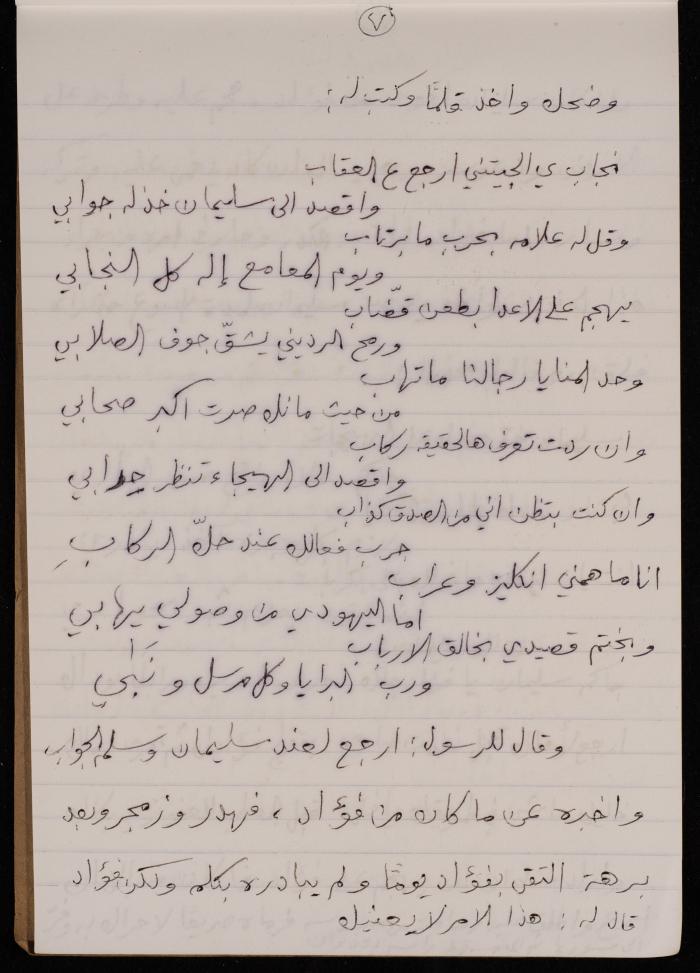 ٧
وضحك واخذ قلمًا وكتب له:
نجاب ي الجيتني ارجع ع العقاب
واقصد الى سليمان خذ له جوابي
وقل له علامه بحرب ما برتاب
ويوم المعامع إله كل النجابي
يهجم على الاعدا بطعن قضّاب
ورمح الرديني يشقّ جوف الصلابي
وحد المنايا رجالنا ماتهاب
من حيث مانك صرت اكبر صحابي
وان ردت تعرف هالحقيقه ركاب
واقصد الى الهيجاء تنظر حرابي
وان كنت بتظن اني من الصدق كذاب
جرب فعالك عند حلّ الركابِ
انا ماهمني انكليز وعراب
اما اليهودي من وصولي يهابي
وبختم قصيدي بخالق الارباب
ورب البرايا وكل مرسل ونَبي
وقال للرسول: ارجع لعند سليمان وسلم الجواب
واخبره عن ما كان من فؤاد، فهدر وزمجر وبعد
برهة التقى بفؤاد يومًا ولم يبادره بكلمه ولكن فؤاد
قال له: هذا الامر لا يعنيك